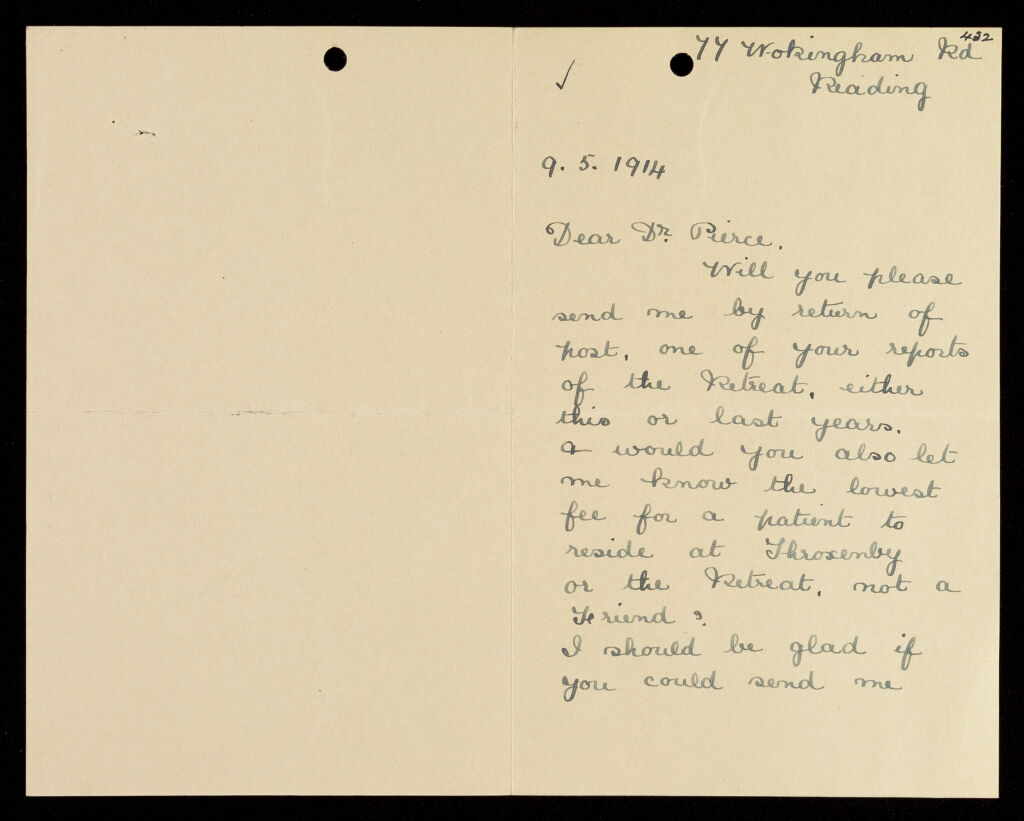 432
77 Wokingham Rd
Reading
9. 5. 1914
Dear Dr. Pierce.
Will you please
send me by return of
post, one of your reports
of the Retreat, either
this or last years.
& would you also let
me know the lowest
fee for a patient to
reside at Throxenby
or the Retreat, not a
Friend?
I should be glad if
you could send me